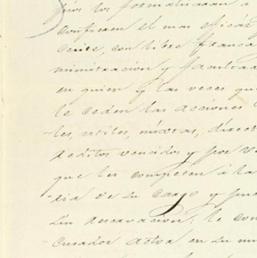 por los formalidades a
confieren el mas eficáz
ce con libre franca
ministracion y facultad
en quien y las veces que
le ceden las acciones
les, utiles, mixtas, direct
reditos vencidos y por v
que les competen á la
-cia de su cargo y pue
sin reservacion, le con
-curador actor en su m